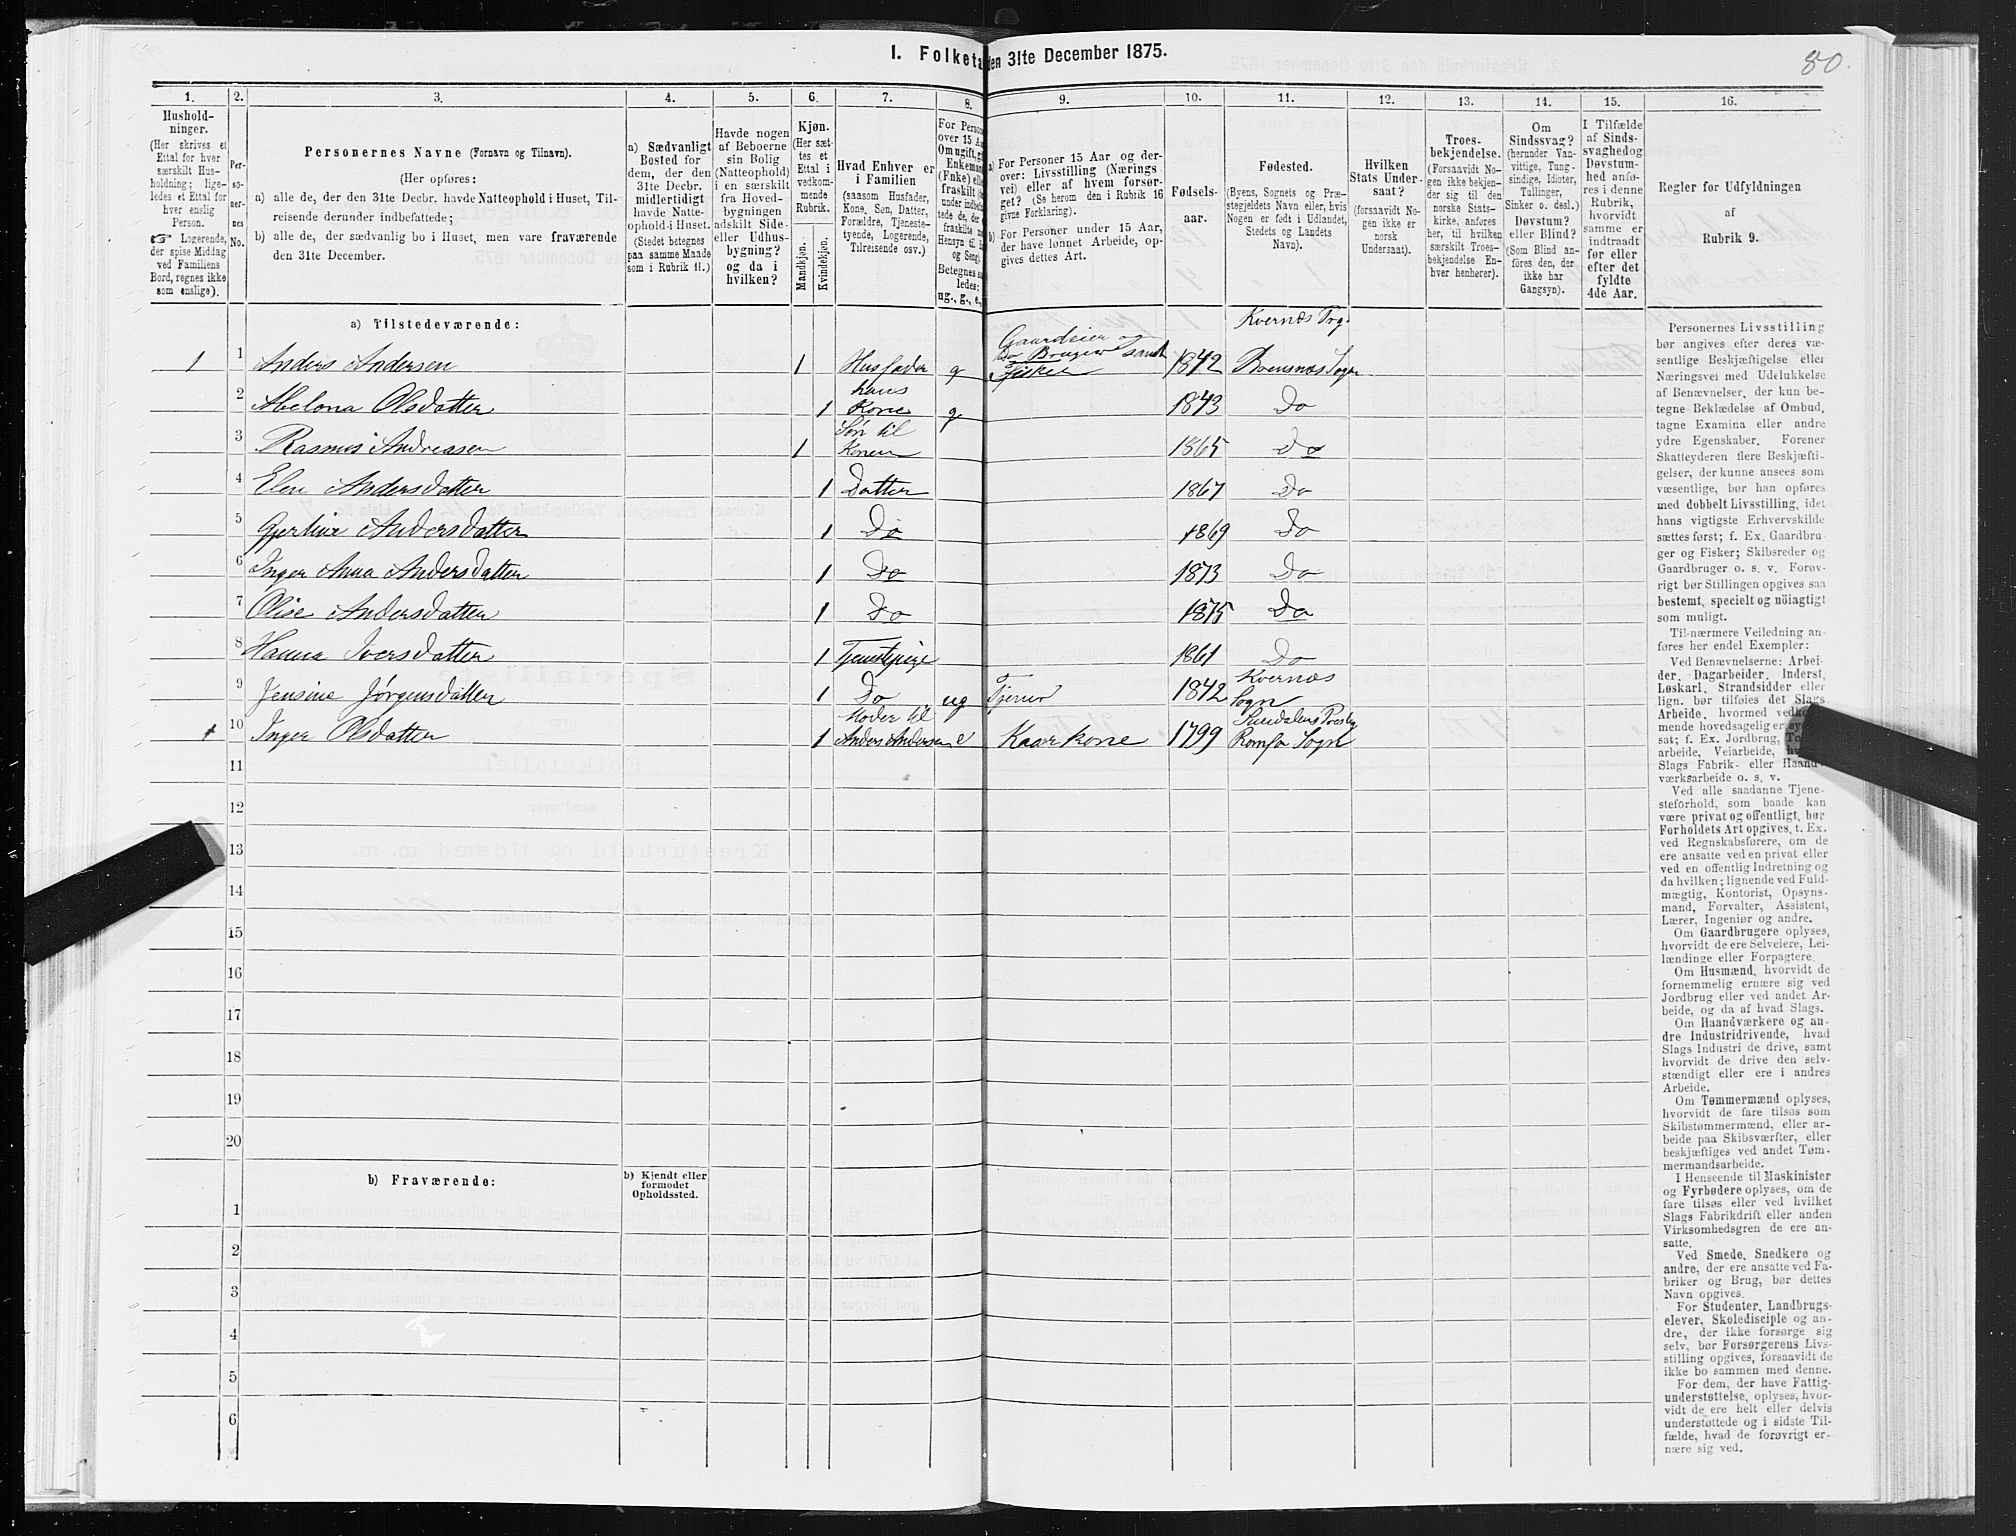 I. Folketa den 31te December 1875.
80.
1. 2. 3. 4. 5. 6. 7. 8. 9. 10. 11. 12. 13. 14. 15. 16.
Hushold-
ninger.
(Her skrives et
Ettal for hver
særskilt Hus-
holdning; lige-
ledes et Ettal for
hver enslig
Person.
☞ Logerende,
der spise Middag
ved Familiens
Bord, regnes ikke
som enslige).
Per-
so-
ner-
nes
No.
Personernes Navne (Fornavn og Tilnavn).
(Her opføres:
a) alle de, der den 31te Decbr. havde Natteophold i Huset, Til-
reisende derunder indbefattede;
b) alle de, der sædvanlig bo i Huset, men vare fraværende
den 31te December.
a) Sædvanligt
Bosted for
dem, der den
31te Decbr.
midlertidigt
havde Natte-
ophold i Huset.
(Stedet betegnes
paa samme Maade
som i Rubrik 11.)
Havde nogen
af Beboerne
sin Bolig
(Natteophold)
i en særskilt
fra Hoved-
bygningen
adskilt Side-
eller Udhus-
bygning?
og da i
hvilken?
Kjøn.
(Her sæt-
tes et
Ettal i
vedkom-
mende
Rubrik.
Mandkjøn.
Kvindekjøn.
Hvad Enhver er
i Familien
(saasom Husfader,
Kone, Søn, Datter,
Forældre, Tjeneste-
tyende, Logerende,
Tilreisende osv.)
For Perso
over 15 Aa
Om ugift, g
Enkeman
(Enke) el
fraskilt (d
under indbe
tede de, der
fraskilte m
Hensyn til B
og Seng)
Betegnes s
ledes:
ug., g., e.,
a) For Personer 15 Aar og der-
over: Livsstilling (Nærings-
vei) eller af hvem forsør-
get? (Se herom den i Rubrik 16
givne Forklaring).
b) For Personer under 15 Aar,
der have lønnet Arbeide, op-
gives dettes Art.
Fødsels-
aar.
Fødested.
(Byens, Sognets og Præ-
stegjeldets Navn eller, hvis
Nogen er født i Udlandet,
Stedets og Landets
Navn).
Hvilken
Stats Under-
saat?
(forsaavidt No-
gen ikke er
norsk
Undersaat).
Troes-
bekjendelse.
(Forsaavidt No-
gen ikke bekjen-
der sig til den
norske Stats-
kirke, anføres
her, til hvilken
særskilt Troes-
bekjendelse En-
hver henhører).
Om
Sindssvag?
(herunder Van-
vittige, Tung-
sindige, Idioter,
Tullinger,
Sinker o. desl.)
Døvstum?
eller Blind?
(Som Blind an-
føres den, der
ikke har
Gangsyn).
I Tilfælde
af Sinds-
svaghed og
Døvstum-
hed anfø-
res i denne
Rubrik,
hvorvidt
samme er
indtraadt
før eller
efter det
fyldte
4de Aar.
Regler for Udfyldningen
af
Rubrik 9.
a) Tilstedeværende:
Kvernæs Prg.
Gaardeier og
1 1 Anders Andersen 1 Husfader g Do Bruger samt Fisker 1842 Bremsnæs Sogn
hans
2 Abelona Olsdatter 1 Kone g 1843 Do
Søn til
3 Rasmus Andreassen 1 Konen 1865 Do
4 Elen Andersdatter 1 Datter 1867 Do
5 Gjertine Andersdatter 1 Do 1869 Do
6 Inger Anna Andersdatter 1 Do 1873 Do
7 Olise Andersdatter 1 Do 1875 Do
8 Hanna Iversdatter 1 Tjenestepige 1861 Do
Kvernæs
9 Jensine Jørgensdatter 1 Do ug Tjener 1842 Sogn
Moder til Sundalens Prestg
1 10 Inger Olsdatter 1 Anders Andersen e Kaarkone 1799 Romfo Sogn
11
12
13
14
15
16
17
18
19
20
b) Fraværende:
b) Kjendt eller
formodet
Opholdssted.
1
2
3
4
5
6
Personernes Livsstilling
bør angives efter deres væ-
sentlige Beskjæftigelse eller
Næringsvei med Udelukkelse
af Benævnelser, der kun be-
tegne Beklædelse af Ombud,
tagne Examina eller andre
ydre Egenskaber. Forener
Skatteyderen flere Beskjæfti-
gelser, der kunne ansees som
væsentlige, bør han opføres
med dobbelt Livsstilling, idet
hans vigtigste Erhvervskilde
sættes først; f. Ex. Gaardbru-
ger og Fisker; Skibsreder og
Gaardbruger o. s. v. Forøv-
rigt bør Stillingen opgives saa
bestemt, specielt og nøiagtigt
som muligt.
Til nærmere Veiledning an-
føres her endel Exempler:
Ved Benævnelserne: Arbei-
der, Dagarbeider, Inderst,
Løskarl, Strandsidder eller
lign. bør tilføies det Slags
Arbeide, hvormed vedkom-
mende hovedsagelig er sys
sat; f. Ex. Jordbrug, To
arbeide, Veiarbeide, hv
Slags Fabrik- eller Haand-
værksarbeide o. s. v.
Ved alle saadanne Tjene-
steforhold, som baade kan
være privat og offentligt, bør
Forholdets Art opgives, t. Ex.
ved Regnskabsførere, om de
ere ansatte ved en privat eller
ved en offentlig Indretning og
da hvilken; lignende ved Fuld-
mægtig, Kontorist, Opsyns-
mand, Forvalter, Assistent,
Lærer, Ingeniør og andre.
Om Gaardbrugere oplyses,
hvorvidt de ere Selveiere, Lei-
lændinge eller Forpagtere.
Om Husmænd, hvorvidt de
fornemmelig ernære sig ved
Jordbrug eller ved andet Ar-
beide, og da af hvad Slags.
Om Haandværkere og an-
dre Industridrivende, hvad
Slags Industri de drive, samt
hvorvidt de drive den selv-
stændigt eller ere i andres
Arbeide.
Om Tømmermænd oplyses,
hvorvidt de fare tilsøs som
Skibstømmermænd, eller ar-
beide paa Skibsværfter, eller
beskjæftiges ved andet Tøm-
mermandsarbeide.
I Henseende til Maskinister
og Fyrbødere oplyses, om de
fare tilsøs eller ved hvilket
Slags Fabrikdrift eller anden
Virksomhedsgren de ere an-
satte.
Ved Smede, Snedkere og
andre, der ere ansatte ved Fa-
briker og Brug, bør dettes
Navn opgives.
For Studenter, Landbrugs-
elever, Skoledisciple og an-
dre, der ikke forsørge sig
selv, bør Forsørgerens Livs-
stilling opgives, forsaavidt de
ikke bo sammen med denne.
For dem, der have Fattig-
understøttelse, oplyses, hvor-
vidt de ere helt eller delvis
understøttede og i sidste Til-
fælde, hvad de forøvrigt er-
nære sig ved.